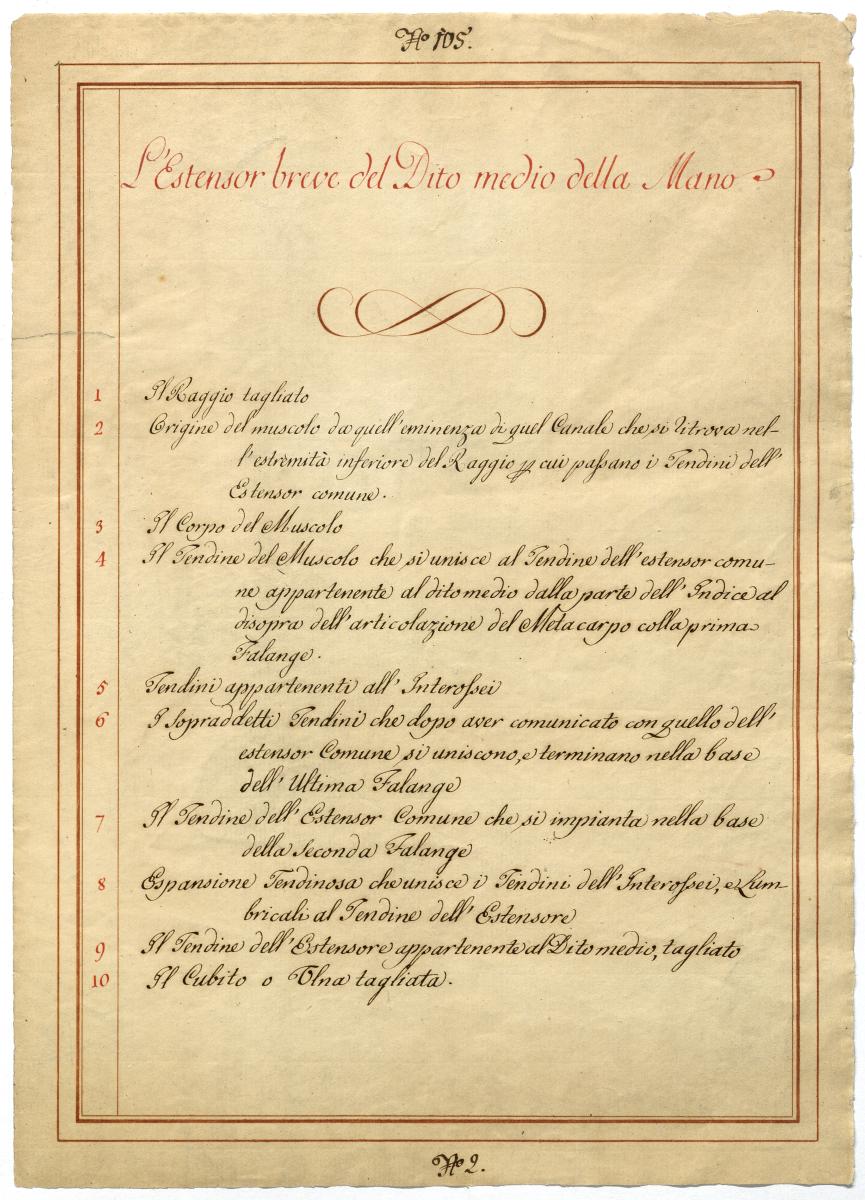 No 105.
L'Estensor breve del Dito medio della Mano
1 Il Raggio tagliato
2 Origine del muscolo da quell'eminenza di quel Canale che si ritrova nel-
l'estremità inferiore del Raggio p cui paſsano i Tendini dell'
Estensor comune.
3 Il Corpo del Muscolo
4 Il Tendine del Muscolo che si unisce al Tendine dell'estensor comu-
ne appartenente al dito medio dalla parte dell'Indice al
disopra dell'articolazione del Metacarpo colla prima
Falange.
5 Tendini appartenenti all'Interoſsei
6 I Sopraddetti Tendini che dopo aver comunicato con quello dell'
estensor Comune si uniscono, e terminano nella base
dell'Ultima Falange
7 Il Tendine dell'Estensor Comune che si impianta nella base
della seconda Falange
8 Espansione Tendinosa che unisce i Tendini dell'Interoſsei, e Lum-
bricali al Tendine dell'Estensore
9 Il Tendine dell'Estensore appartenente al Dito medio, tagliato
10 Il Cubito o Ulna tagliata.
No 2.